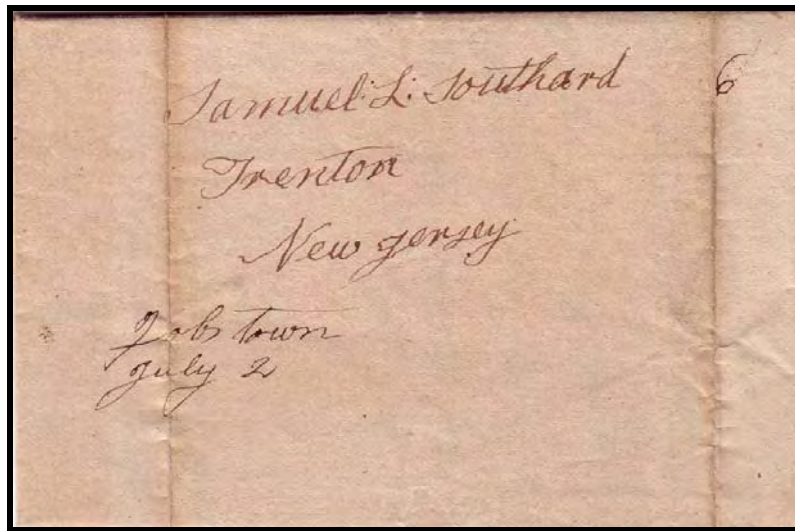 Samuel: L: Southard 6
Trenton
New Jersey
Jobstown
July 2